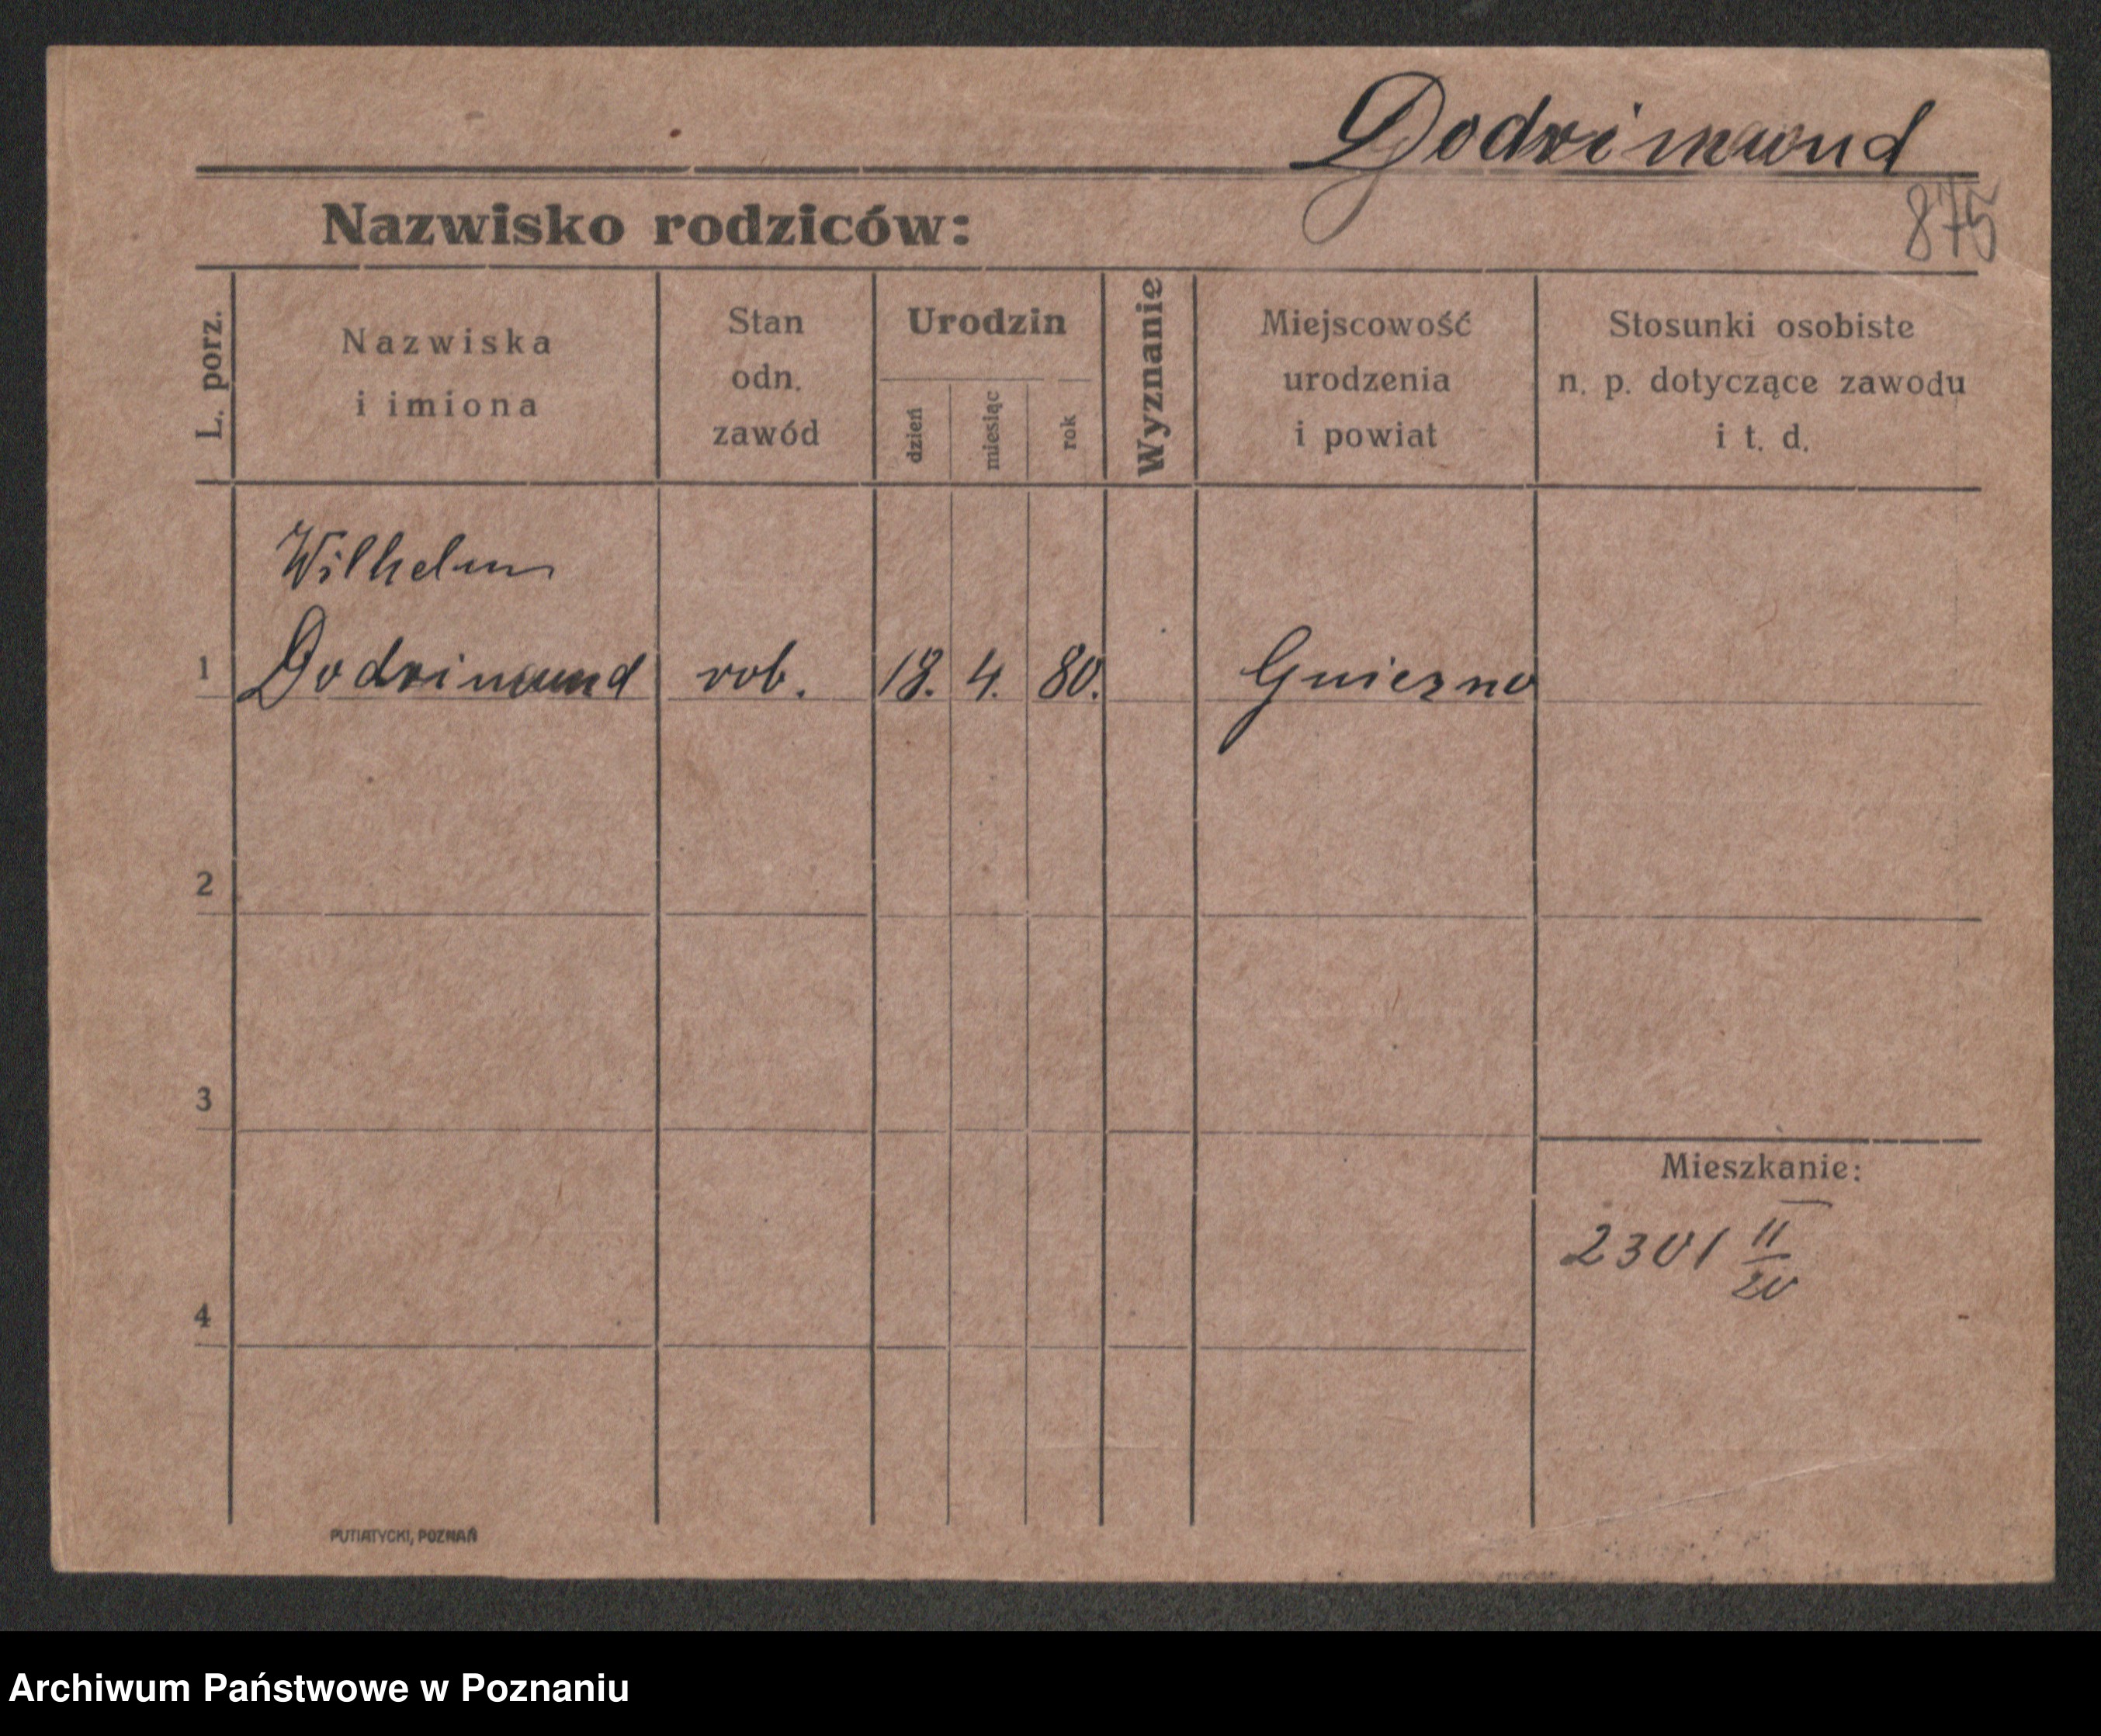 Dodrimund
875
Nazwisko rodziców:
L. porz.
Nazwiska
i imiona
Stan
odn.
zawód
Urodzin
dzień
miesiąc
rok
Wyznanie
Miejscowość
urodzenia
i powiat
Stosunki osobiste
n. p. dotyczące zawodu
i t. d.
Wilhelm
1 Dodrimund rob. 18. 4. 80. Gniezno
2
3
Mieszkanie:
2301 II/20
4
PUTIATYCKI, POZNAŃ
Archiwum Państwowe w Poznaniu